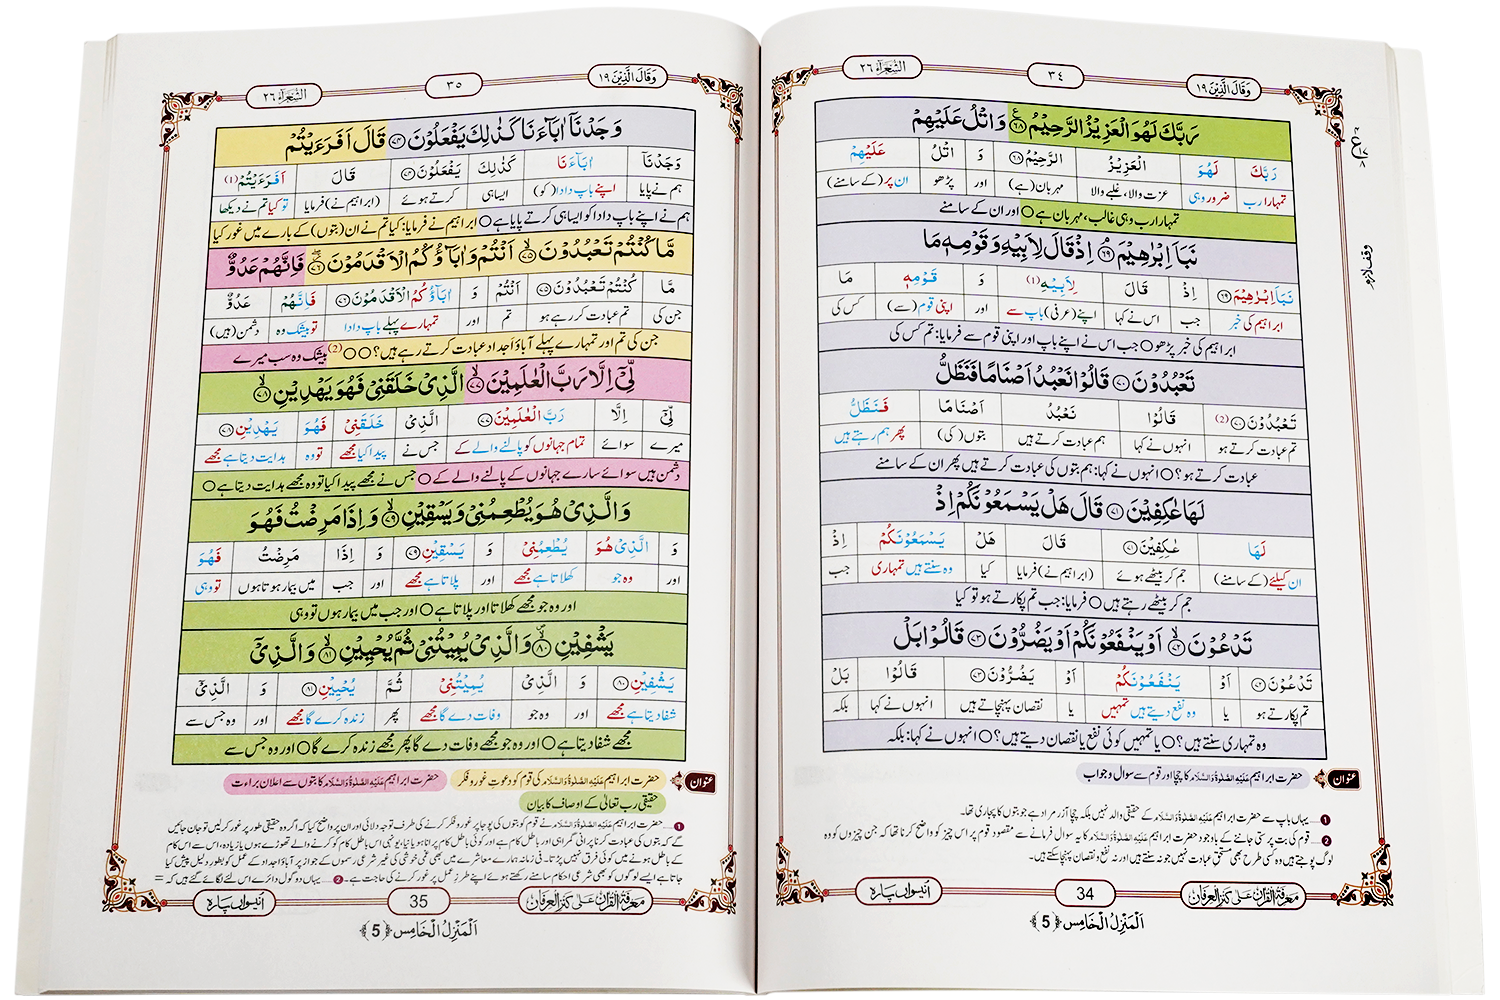 وَقَالَ الَّذِيْنَ ١٩
٣٤
الشُّعَرَآء ٢٦
رَبَّكَ لَهُوَ الْعَزِيْزُ الرَّحِيْمُ ﴿٦٨﴾ وَاتْلُ عَلَيْهِمْ
رَبَّكَ لَهُوَ الْعَزِيْزُ الرَّحِيْمُ ﴿٦٨﴾ وَ اتْلُ عَلَيْهِمْ
تمہارا رب ضرور وہی عزت والا، غلبے والا مہربان (ہے) اور پڑھو ان پر (کے سامنے)
تمہارا رب وہی غالب، مہربان ہے ○ اور ان کے سامنے
نَبَاَ اِبْرٰهِيْمَ ﴿٦٩﴾ اِذْ قَالَ لِاَبِيْهِ وَقَوْمِهٖ مَا
نَبَاَ اِبْرٰهِيْمَ ﴿٦٩﴾ اِذْ قَالَ لِاَبِيْهِ (1) وَ قَوْمِهٖ مَا
ابراہیم کی خبر جب اس نے کہا اپنے (عرفی) باپ سے اور اپنی قوم (سے) کس کی
ابراہیم کی خبر پڑھو ○ جب اس نے اپنے باپ اور اپنی قوم سے فرمایا: تم کس کی
تَعْبُدُوْنَ ﴿٧٠﴾ قَالُوْا نَعْبُدُ اَصْنَامًا فَنَظَلُّ
تَعْبُدُوْنَ ﴿٧٠﴾ (2) قَالُوْا نَعْبُدُ اَصْنَامًا فَنَظَلُّ
تم عبادت کرتے ہو انہوں نے کہا ہم عبادت کرتے ہیں بتوں (کی) پھر ہم رہتے ہیں
عبادت کرتے ہو؟ ○ انہوں نے کہا: ہم بتوں کی عبادت کرتے ہیں پھر ان کے سامنے
لَهَا عٰكِفِيْنَ ﴿٧١﴾ قَالَ هَلْ يَسْمَعُوْنَكُمْ اِذْ
لَهَا عٰكِفِيْنَ ﴿٧١﴾ قَالَ هَلْ يَسْمَعُوْنَكُمْ اِذْ
ان کیلئے (کے سامنے) جم کر بیٹھے ہوئے (ابراہیم نے) فرمایا کیا وہ سنتے ہیں تمہاری جب
جم کر بیٹھے رہتے ہیں ○ فرمایا: جب تم پکارتے ہو تو کیا
تَدْعُوْنَ ﴿٧٢﴾ اَوْ يَنْفَعُوْنَكُمْ اَوْ يَضُرُّوْنَ ﴿٧٣﴾ قَالُوْا بَلْ
تَدْعُوْنَ ﴿٧٢﴾ اَوْ يَنْفَعُوْنَكُمْ اَوْ يَضُرُّوْنَ ﴿٧٣﴾ قَالُوْا بَلْ
تم پکارتے ہو یا وہ نفع دیتے ہیں تمہیں یا نقصان پہنچاتے ہیں انہوں نے کہا بلکہ
وہ تمہاری سنتے ہیں؟ ○ یا تمہیں کوئی نفع یا نقصان دیتے ہیں؟ ○ انہوں نے کہا: بلکہ
عنوان حضرت ابراہیم عَلَيْهِ الصَّلٰوةُ وَالسَّلَام کا چچا اور قوم سے سوال و جواب
1 ...... یہاں باپ سے حضرت ابراہیم عَلَيْهِ الصَّلٰوةُ وَالسَّلَام کے حقیقی والد نہیں بلکہ چچا آزر مراد ہے جو بتوں کا پجاری تھا۔
2 ...... قوم کی بت پرستی جاننے کے باوجود حضرت ابراہیم عَلَيْهِ الصَّلٰوةُ وَالسَّلَام کا یہ سوال فرمانے سے مقصود قوم پر اس چیز کو واضح کرنا تھا کہ جن چیزوں کو وہ
لوگ پوجتے ہیں وہ کسی طرح بھی مستحقِ عبادت نہیں جو نہ سنتے ہیں اور نہ نفع و نقصان پہنچا سکتے ہیں۔
معرفۃ القرآن علی کنز العرفان
34
اُنیسواں پارہ
اَلْمَنْزِلُ الْخَامِس ﴿5﴾
وقف لازم
وَقَالَ الَّذِيْنَ ١٩
٣٥
الشُّعَرَآء ٢٦
وَجَدْنَاۤ اٰبَآءَنَا كَذٰلِكَ يَفْعَلُوْنَ ﴿٧٤﴾ قَالَ اَفَرَءَيْتُمْ
وَجَدْنَاۤ اٰبَآءَنَا كَذٰلِكَ يَفْعَلُوْنَ ﴿٧٤﴾ قَالَ اَفَرَءَيْتُمْ (1)
ہم نے پایا اپنے باپ دادا (کو) ایسا ہی کرتے ہوئے (ابراہیم نے) فرمایا تو کیا تم نے دیکھا
ہم نے اپنے باپ دادا کو ایسا ہی کرتے پایا ہے ○ ابراہیم نے فرمایا: کیا تم نے ان (بتوں) کے بارے میں غور کیا
مَّا كُنْتُمْ تَعْبُدُوْنَ ﴿٧٥﴾ اَنْتُمْ وَاٰبَآؤُكُمُ الْاَقْدَمُوْنَ ﴿٧٦﴾ فَاِنَّهُمْ عَدُوٌّ
مَّا كُنْتُمْ تَعْبُدُوْنَ ﴿٧٥﴾ اَنْتُمْ وَ اٰبَآؤُكُمُ الْاَقْدَمُوْنَ ﴿٧٦﴾ فَاِنَّهُمْ عَدُوٌّ
جن کی تم عبادت کر رہے ہو تم اور تمہارے پہلے باپ دادا تو بیشک وہ دشمن (ہیں)
جن کی تم اور تمہارے پہلے آباؤ اَجداد عبادت کرتے رہے ہیں؟ ○ ○ (2) بیشک وہ سب میرے
لِّيْۤ اِلَّا رَبَّ الْعٰلَمِيْنَ ﴿٧٧﴾ الَّذِيْ خَلَقَنِيْ فَهُوَ يَهْدِيْنِ ﴿٧٨﴾
لِّيْۤ اِلَّا رَبَّ الْعٰلَمِيْنَ ﴿٧٧﴾ الَّذِيْ خَلَقَنِيْ فَهُوَ يَهْدِيْنِ ﴿٧٨﴾
میرے سوائے تمام جہانوں کو پالنے والے کے جس نے پیدا کیا مجھے تو وہ ہدایت دیتا ہے مجھے
دشمن ہیں سوائے سارے جہانوں کے پالنے والے کے ○ جس نے مجھے پیدا کیا تو وہ مجھے ہدایت دیتا ہے ○
وَالَّذِيْ هُوَ يُطْعِمُنِيْ وَيَسْقِيْنِ ﴿٧٩﴾ وَاِذَا مَرِضْتُ فَهُوَ
وَ الَّذِيْ هُوَ يُطْعِمُنِيْ وَ يَسْقِيْنِ ﴿٧٩﴾ وَ اِذَا مَرِضْتُ فَهُوَ
اور وہ جو کھلاتا ہے مجھے اور پلاتا ہے مجھے اور جب میں بیمار ہوتا ہوں تو وہی
اور وہ جو مجھے کھلاتا اور پلاتا ہے ○ اور جب میں بیمار ہوں تو وہی
يَشْفِيْنِ ﴿٨٠﴾ وَالَّذِيْ يُمِيْتُنِيْ ثُمَّ يُحْيِيْنِ ﴿٨١﴾ وَالَّذِيْۤ
يَشْفِيْنِ ﴿٨٠﴾ وَ الَّذِيْ يُمِيْتُنِيْ ثُمَّ يُحْيِيْنِ ﴿٨١﴾ وَ الَّذِيْۤ
شفا دیتا ہے مجھے اور وہ جو وفات دے گا مجھے پھر زندہ کرے گا مجھے اور وہ جس سے
مجھے شفا دیتا ہے ○ اور وہ جو مجھے وفات دے گا پھر مجھے زندہ کرے گا ○ اور وہ جس سے
عنوان حضرت ابراہیم عَلَيْهِ الصَّلٰوةُ وَالسَّلَام کی قوم کو دعوتِ غور و فکر حضرت ابراہیم عَلَيْهِ الصَّلٰوةُ وَالسَّلَام کا بتوں سے اعلانِ براءت
حقیقی رب تعالیٰ کے اوصاف کا بیان
1 ...... حضرت ابراہیم عَلَيْهِ الصَّلٰوةُ وَالسَّلَام نے قوم کو بتوں کی پوجا پر غور و فکر کرنے کی طرف توجہ دلائی اور ان پر واضح کیا کہ اگر وہ حقیقی طور پر غور کر لیں تو جان جائیں
گے کہ بتوں کی عبادت کرنا پرانی گمراہی اور باطل کام ہے اور کوئی باطل کام پرانا ہو یا نیا، یونہی اس باطل کام کو کرنے والے تھوڑے ہوں یا زیادہ، اس سے اس کام
کے باطل ہونے میں کوئی فرق نہیں پڑتا۔ فی زمانہ ہمارے معاشرے میں بھی غمی خوشی کی غیر شرعی رسموں کے جواز پر آباؤ اَجداد سے عمل کو بطورِ دلیل پیش کیا
جاتا ہے ایسے لوگوں کو بھی شرعی احکام سامنے رکھتے ہوئے اپنے طرزِ عمل پر غور کرنے کی حاجت ہے۔ 2 ...... یہاں دو گول دائرے اس لئے لگائے گئے ہیں کہ =
معرفۃ القرآن علی کنز العرفان
35
اُنیسواں پارہ
اَلْمَنْزِلُ الْخَامِس ﴿5﴾